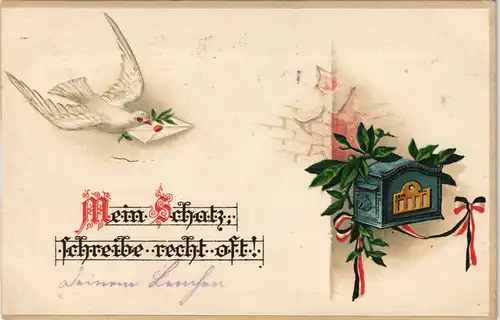 Mein Schatz,
schreibe recht oft!
Deinem Lenchen